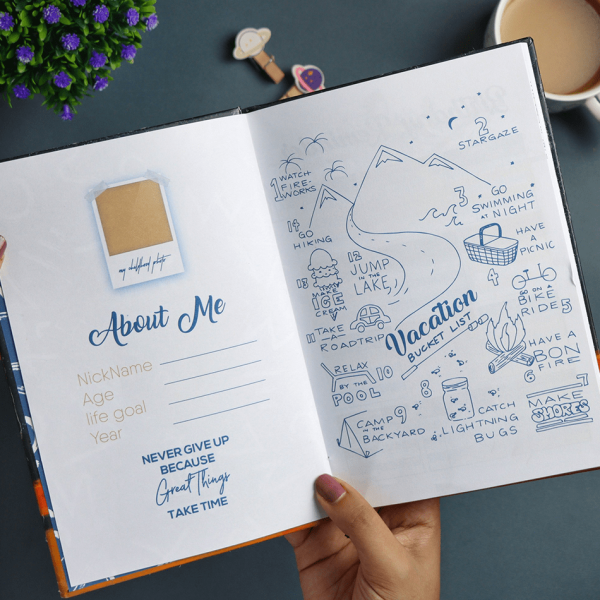 my childhood photo
About Me
NickName
Age
life goal
Year
NEVER GIVE UP
BECAUSE
Great Things
TAKE TIME
1 WATCH
FIRE-
WORKS
2
STARGAZE
3 GO
SWIMMING
AT NIGHT
HAVE
A
PICNIC
4
GO ON A
BIKE
RIDE 5
HAVE A
BON
FIRE
6
7
MAKE
SMORES
8
CATCH
LIGHTNING
BUGS
CAMP 9
IN THE
BACKYARD
RELAX
BY THE 10
POOL
11 TAKE
A
ROADTRIP
12
JUMP
IN THE
LAKE
13
MAKE
ICE
CREAM
14
GO
HIKING
Vacation
BUCKET LIST